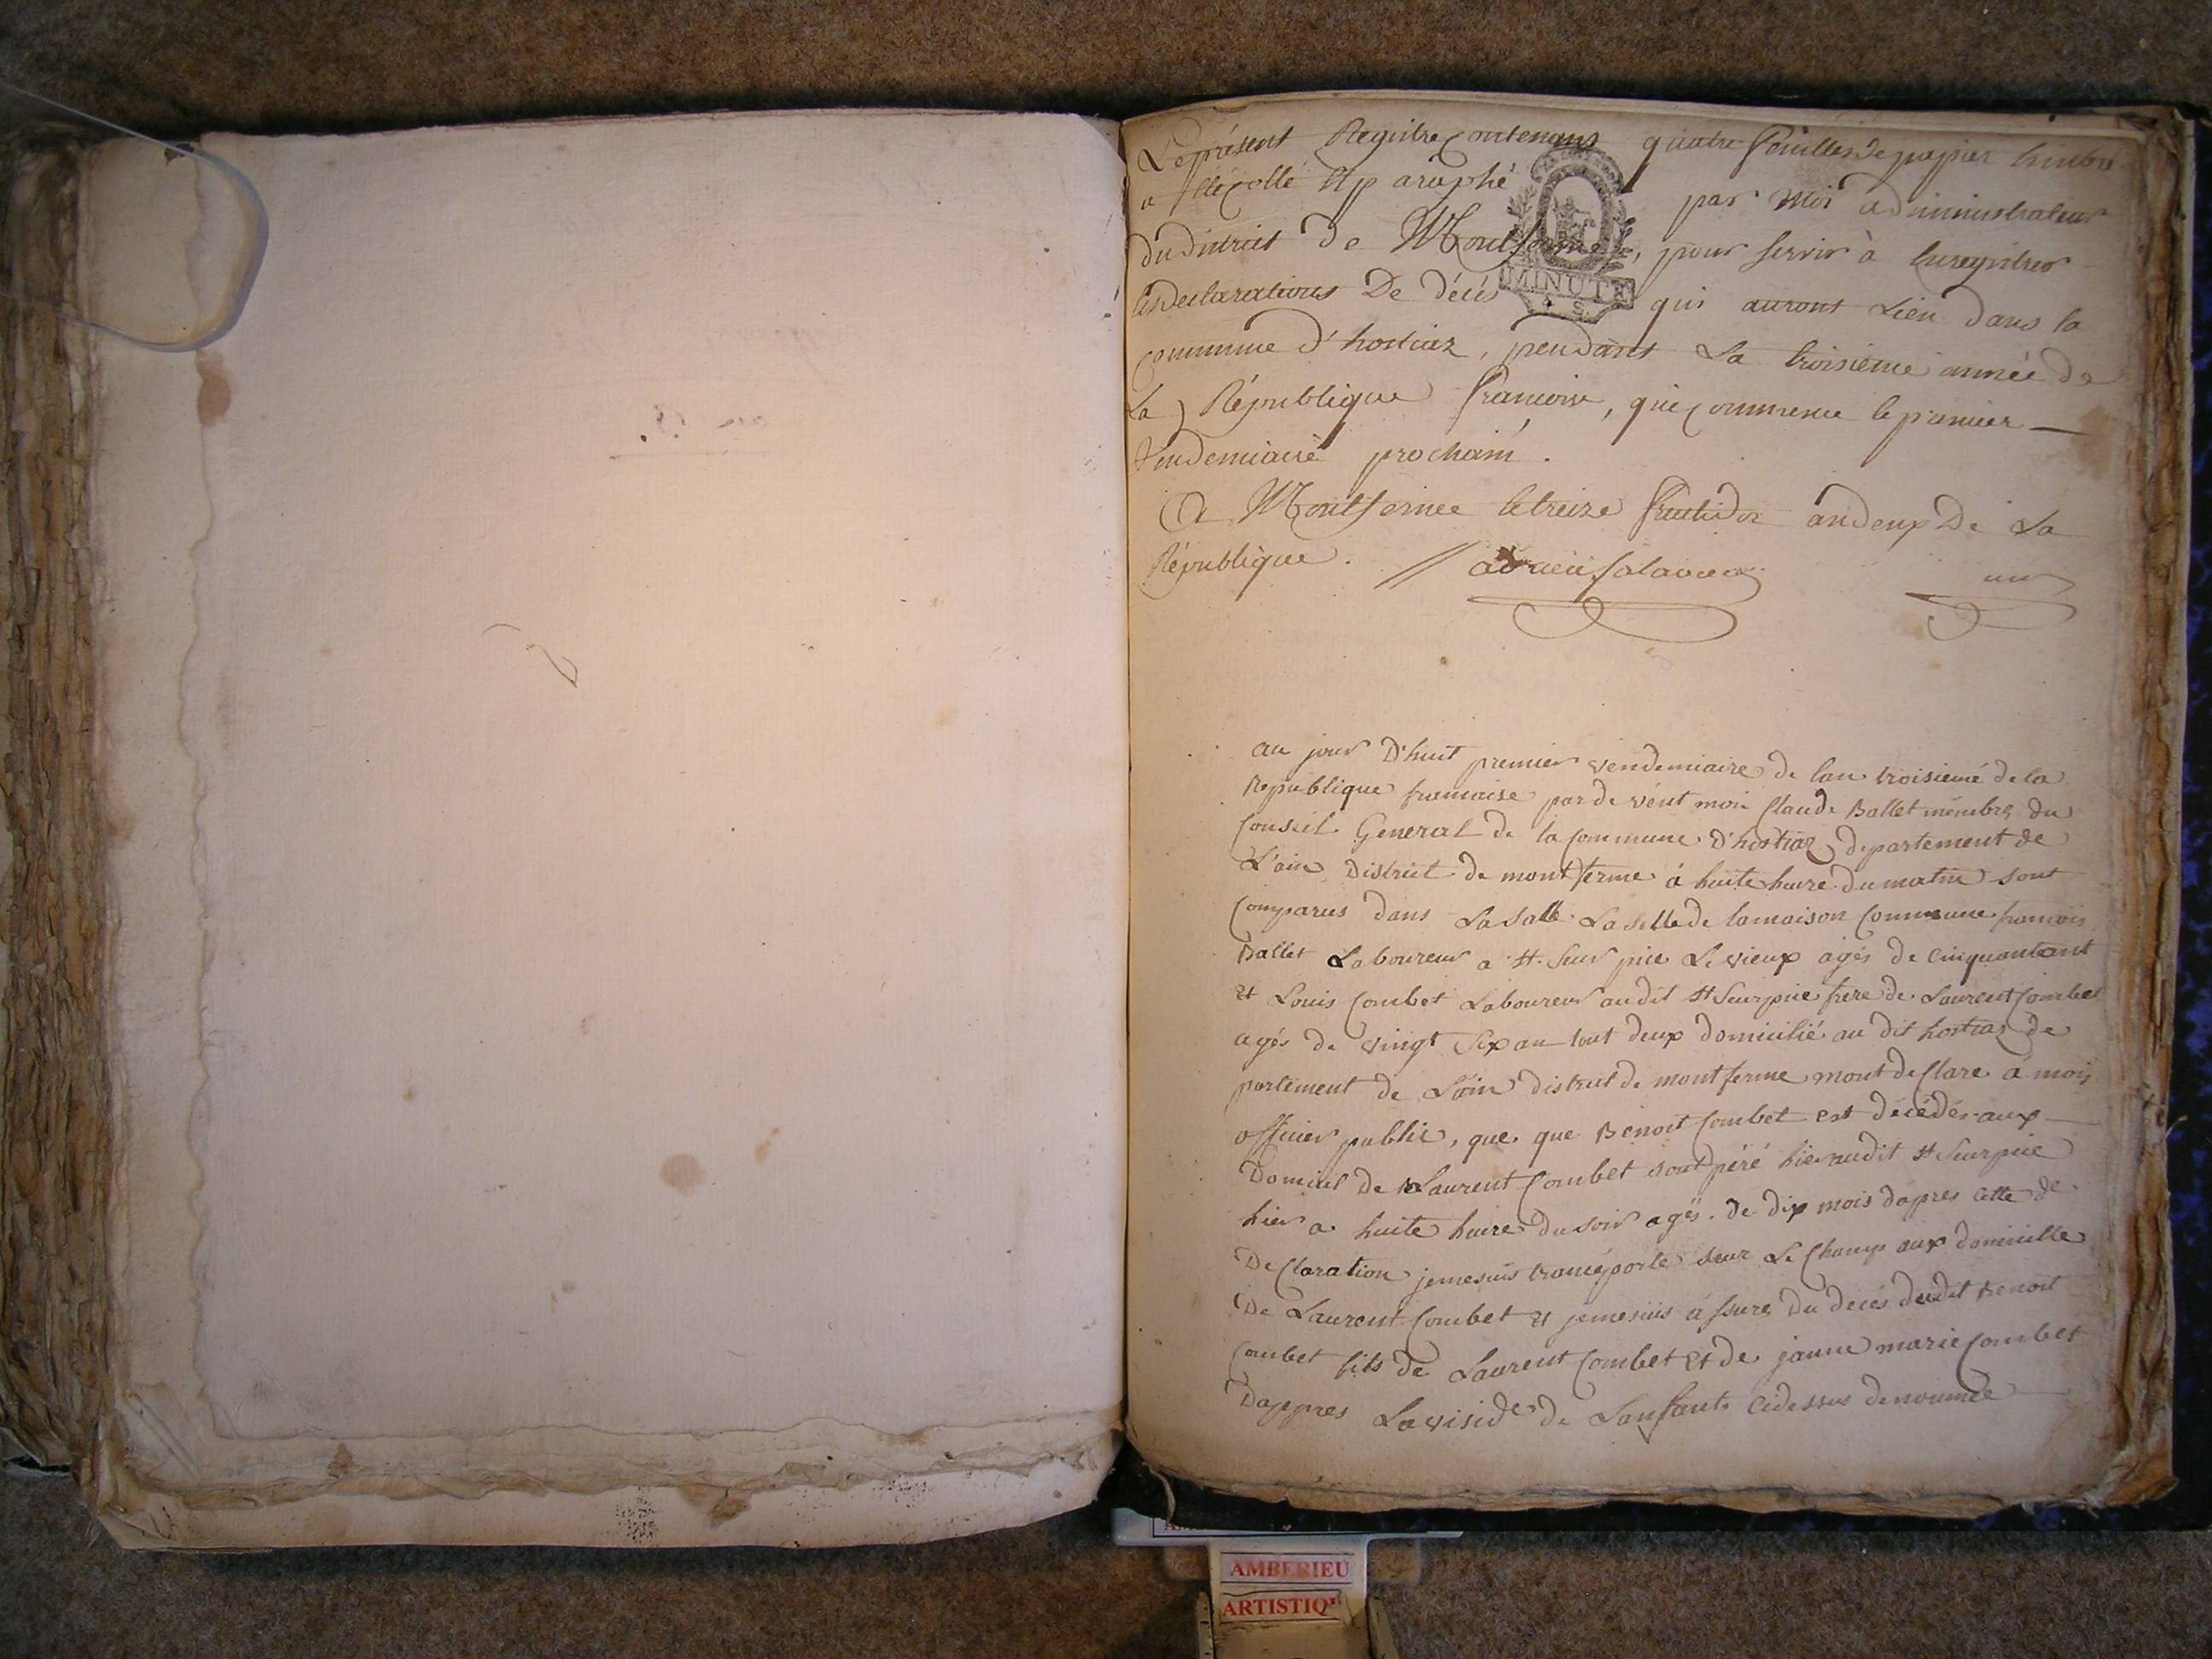 Le présent Registre contenans quatre feuilles de papier timbré
a été collé et paraphé par moi administrateur
du district de Montferme, pour servir à enregistrer
les declarations De décès qui auront Lieu dans la
commune d'hostiaz, pendant La troisieme année de
La République francoise, qui commence le premier
Vendemiaire prochain.
A Montferme le treize fructidor an deux De La
République.
un
MINUTE
4 S.
au jour D'huit premier vendemiaire de lan troisiemé de la
Republique francaise par de vént moi Claude Ballet membre du
Conseil General de la Commune D'hostiaz departement de
L'ain District de montferme à huite heure du matin sont
Comparus dans La salle La selle de la maison Commune francois
Ballet Laboureur a St. Seur pice Le vieux agés de Cinquantant
et Louis Combet Laboureur audit St Seurpice frere de Laurent Combet
agés de vingt Six an tout deux domicilié au dit hostiaz de
partement de L'ain district de montferme mont de Clare a mois
officier public, que que Benoit Combet est décédés aux
Domicil de Laurent Combet sont péré hier audit St Seurpice
hier a huite heure du soir agés de dix mois dapres cette de
De Claration jemesuis transporté seur Le Champ aux domicille
De Laurent Combet et jemesuis assure Du decés dudit Benoit
Combet fils de Laurent Combet et de janne marie Combet
Dappres La viside de Lanfant Cidessus denommée
AMBERIEU
ARTISTIQ